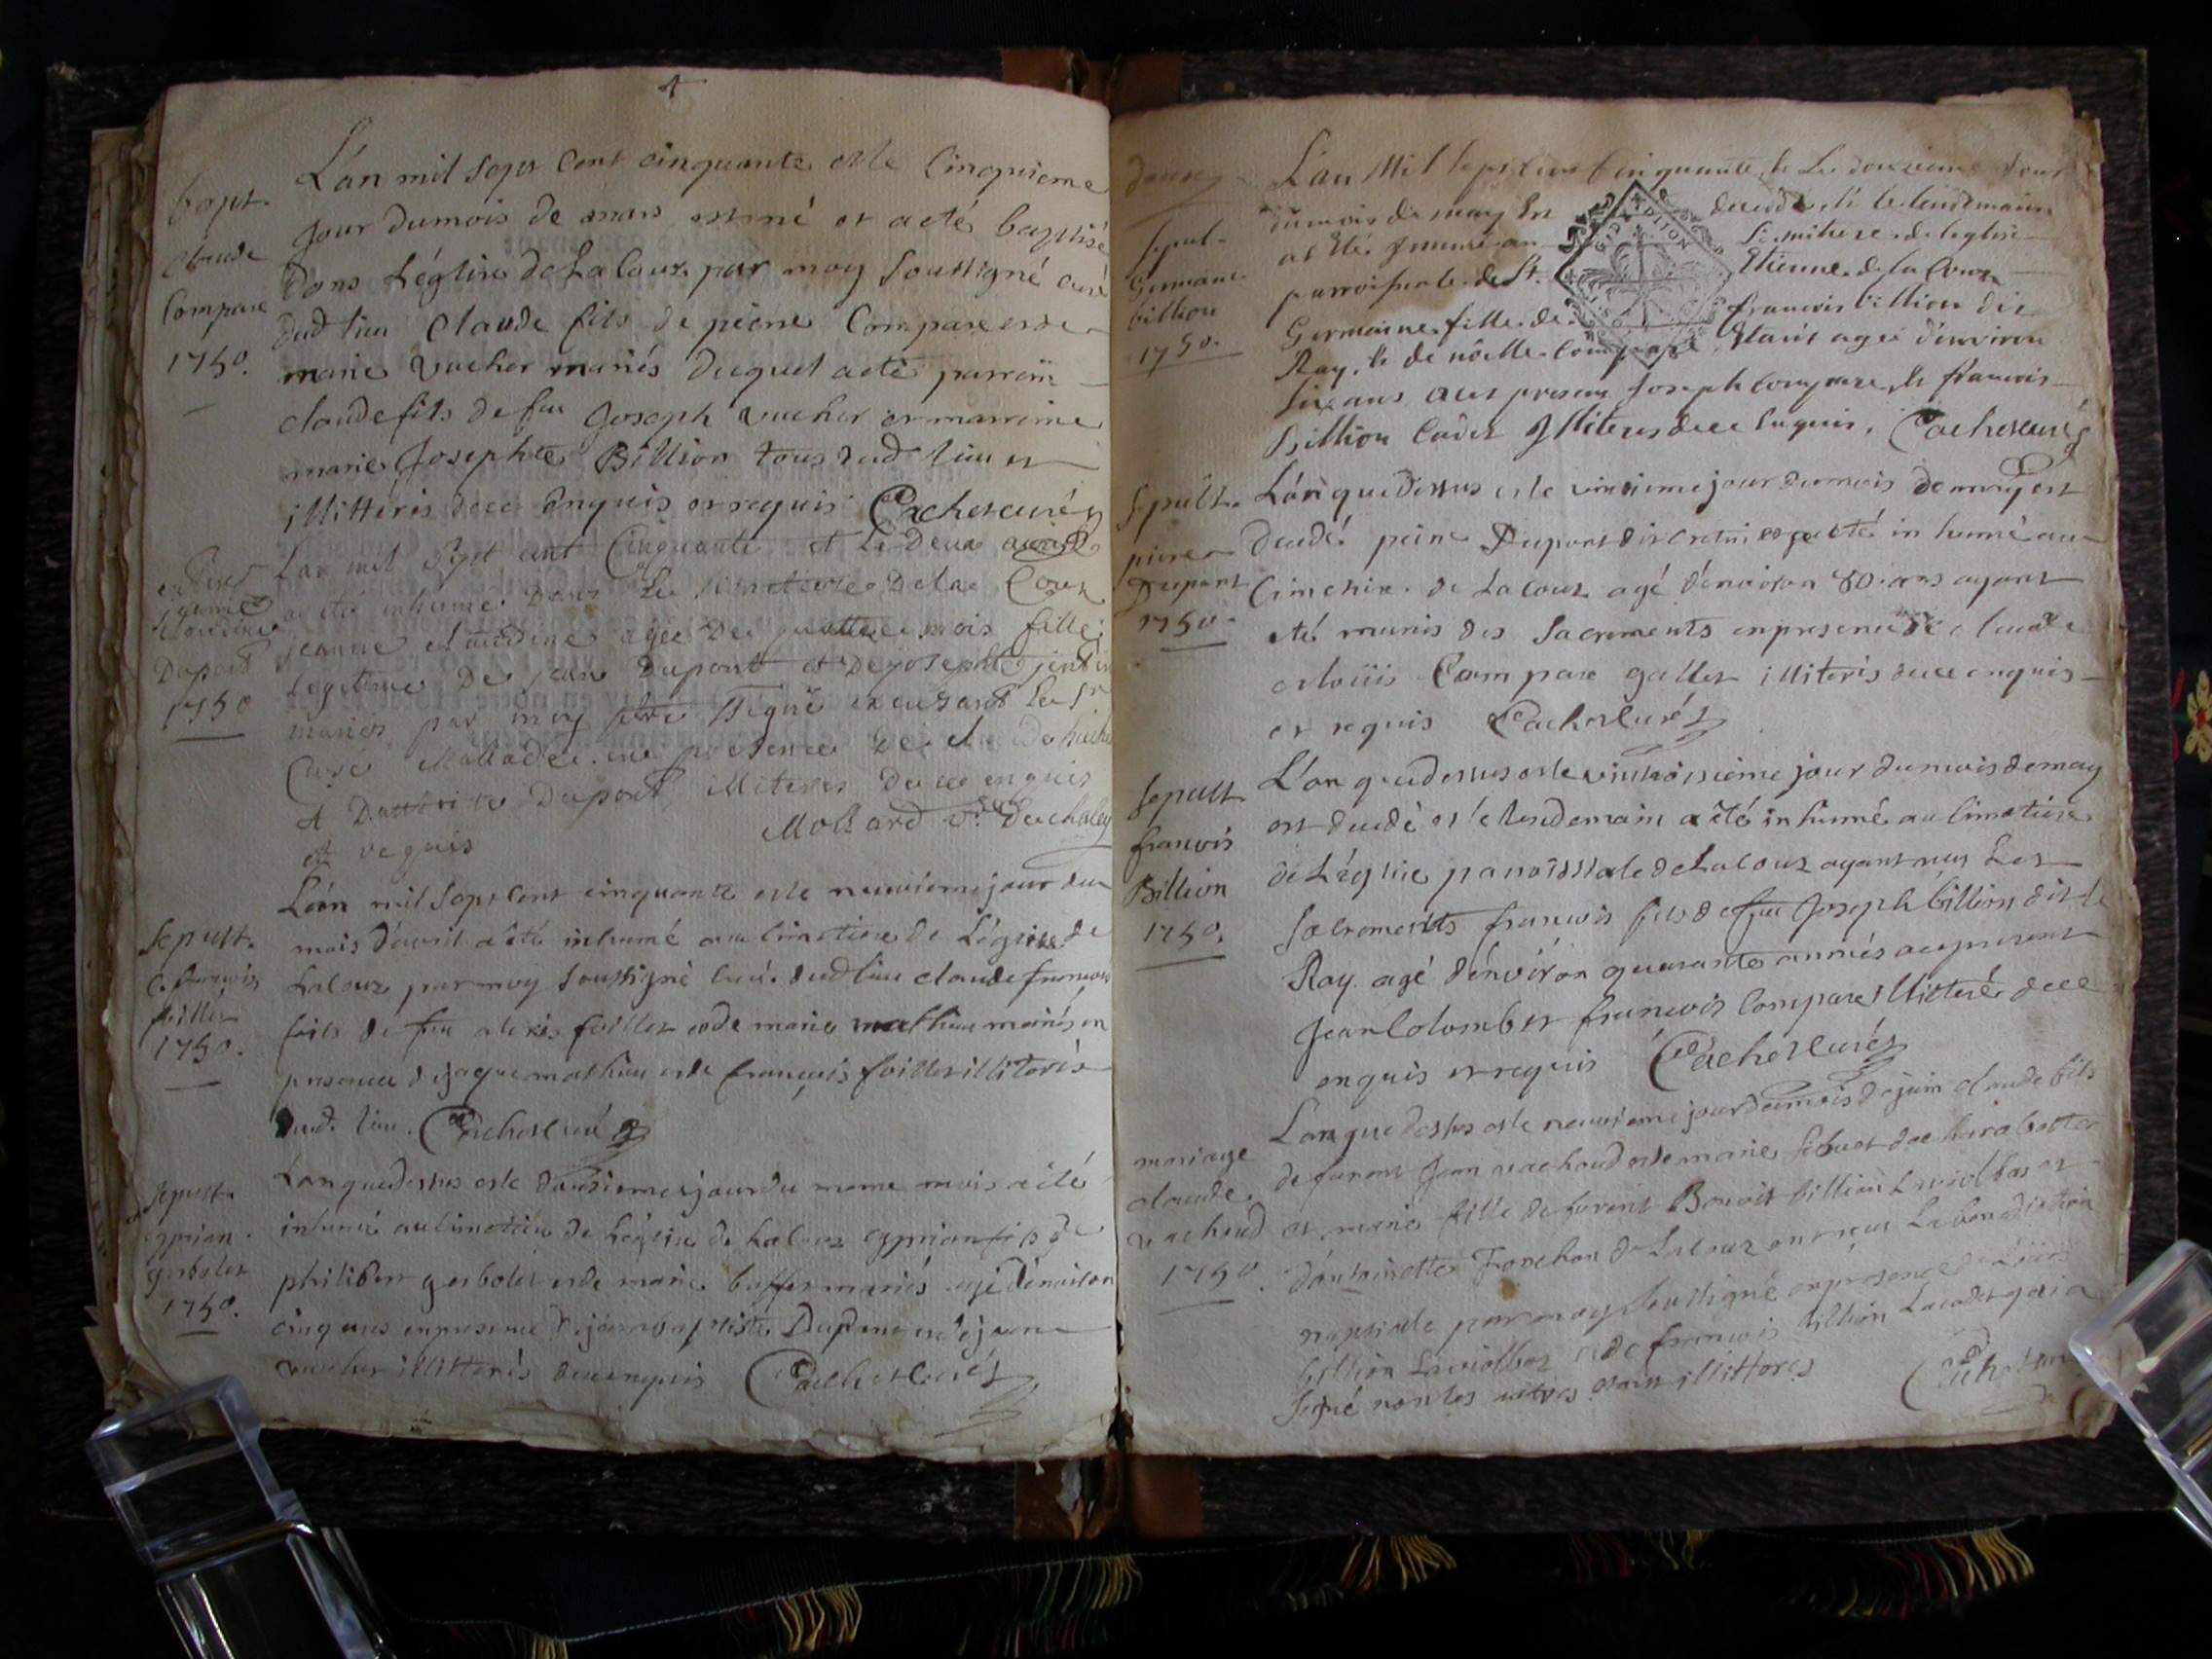 4
bapt.
claude
Compare
1750.
L'an mil Sept Cent cinquante et le Cinquieme
jour dumois de mars est né et a eté baptisé
Dans L'église deLaCoux par moy Soussigné curé
dud lieu Claude fils de pierre Compare et de
marie Vucher mariés duquel a eté parrein
claude fils de feu Joseph vucher et marreine
marie Josephte Billion tous dud lieu et
illitterés de ce enquis et requis Cachet curé
Jeanne
Claudine
Dupont
1750
Lan mil Sept cent Cinquante et Le Deux avril
a eté inhumé Dans Le Simetiere Dela Coux
jeanne claudine agée De quattre mois fille
Legitime De jean Dupont et De josephte
mariés par moy Signé excusant Le Sr
Curé Mallade en presence De
et Dupont illiteres De ce enquis
et requis
Mollard vre
Sepult.
C. francois
foillet
1750.
L'an mil Sept Cent cinquante et le neuvieme jour du
mois d'avril a eté inhumé au Cimetiere de L'eglise de
LaCoux par moy Soussigné Curé dud lieu claude francois
fils de feu alexis foillet et de marie mathieu mariés en
presence de jaque mathieu et de françois foillet illiterés
dud. lieu. Cachet curé
Sepult.
cyprian
gerbolet
1750.
Lan que dessus et le douzieme jour du meme mois a eté
inhumé au Cimetiere de L'eglise de LaCoux cyprian fils de
philibert gerbolet et de marie buffet mariés agé d'environ
cinq ans en presence de jean baptiste Dupont et de jean
vucher illitterés de ce enquis Cachet curé
Sepul-
Germaine
billion
1750.
L'an Mil Sept Cent Cinquante, & Le douzieme Jour
du mois de may Est decedée, & le lendemain
at Eté Inhumé au Semitiere de leglise
parroissiale de St. Etienne de la Coux
Germaine fille de francois billion dit
Ray, & de nöelle Compare, Etant agée d'environ
Six ans aux presens Joseph Compare, & francois
billion Cadet Illiteres de ce Enquis, Cachet curé
Sepult.
pierre
Dupont
1750.
L'an que dessus et le vintieme jour du mois de may est
decedé pierre Dupont dit et a eté in humé au
Cimetiere de LaCoux agé d'environ 80 ans ayant
eté munis des Sacrements en presence de claude
et loüis Compare gallet illiterés de ce enquis
et requis Cachet Curé
Sepult
francois
Billion
1750.
L'an que dessus et le vint troisieme jour du mois de may
est decedé et le lendemain a été inhumé au Cimetiere
de L'églisie parroissiale de LaCoux ayant reçu Les
Sacrements francois fils de feu Joseph billion dit le
Ray agé d'environ quarante années au present
Jean Colomb et francois Compare illitteré de ce
enquis et requis Cachet Curé
mariage
claude
vachoud
1750.
Lan que dessus et le neuvieme jour du mois de juin claude fils
de furent Jean vachoud et de marie
et marie fille de furent Benoit billion
d'antoinette Tronchon de LaCoux ont reçu La benediction
nuptiale par moy soussigné en presence de
billion et de francois billion La cadet qui a
signé non les autres etant illitteres Cachet curé